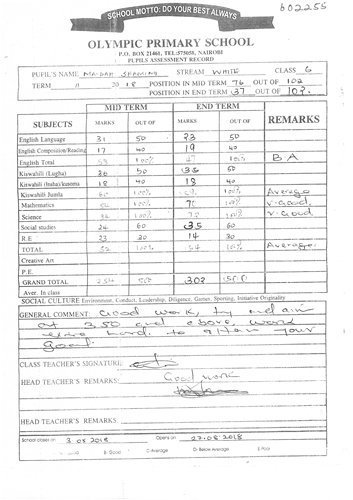 602255
SCHOOL MOTTO: DO YOUR BEST ALWAYS
OLYMPIC PRIMARY SCHOOL
P.O. BOX 21461, TEL:575058, NAIROBI
PUPILS ASSESSMENT RECORD
PUPIL'S NAME STREAM WHITE CLASS 6
TERM 11 2018 POSITION IN MID TERM 76 OUT OF 102
POSITION IN END TERM 37 OUT OF 102.
MID TERM END TERM
SUBJECTS MARKS OUT OF MARKS OUT OF REMARKS
English Language 31 50 23 50
English Composition/Reading 17 40 19 40
English Total 100% 47 100% B A
Kiswahili (Lugha) 36 50 36 50
Kiswahili (Insha)/kusoma 18 40 18 40
Kiswahili Jumla 60 100% 100% Average
Mathematics 100% 100% V. Good
Science 100% 100% V. Good
Social studies 24 60 35 60
R E 23 30 14 30
TOTAL 52 100% 54 100% Average.
Creative Art
P.E.
GRAND TOTAL 500 302 500
Aver. In class
SOCIAL CULTURE Environment, Conduct, Leadership, Diligence, Games, Sporting, Initiative Originality
GENERAL COMMENT: Good work, try and aim
at 350 and above, work
extra hard to attain your
goal.
CLASS TEACHER'S SIGNATURE:
HEAD TEACHER'S REMARKS: Good work
HEAD TEACHER'S REMARKS:
School closes on 3.08.2018 Opens on 27.08.2018
B-Good C-Average D-Below Average E-Poor